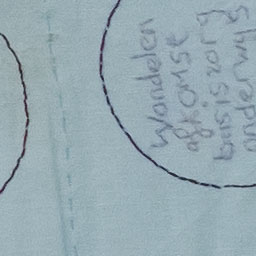 wandelen
afkomst
basiszorg
onderwys